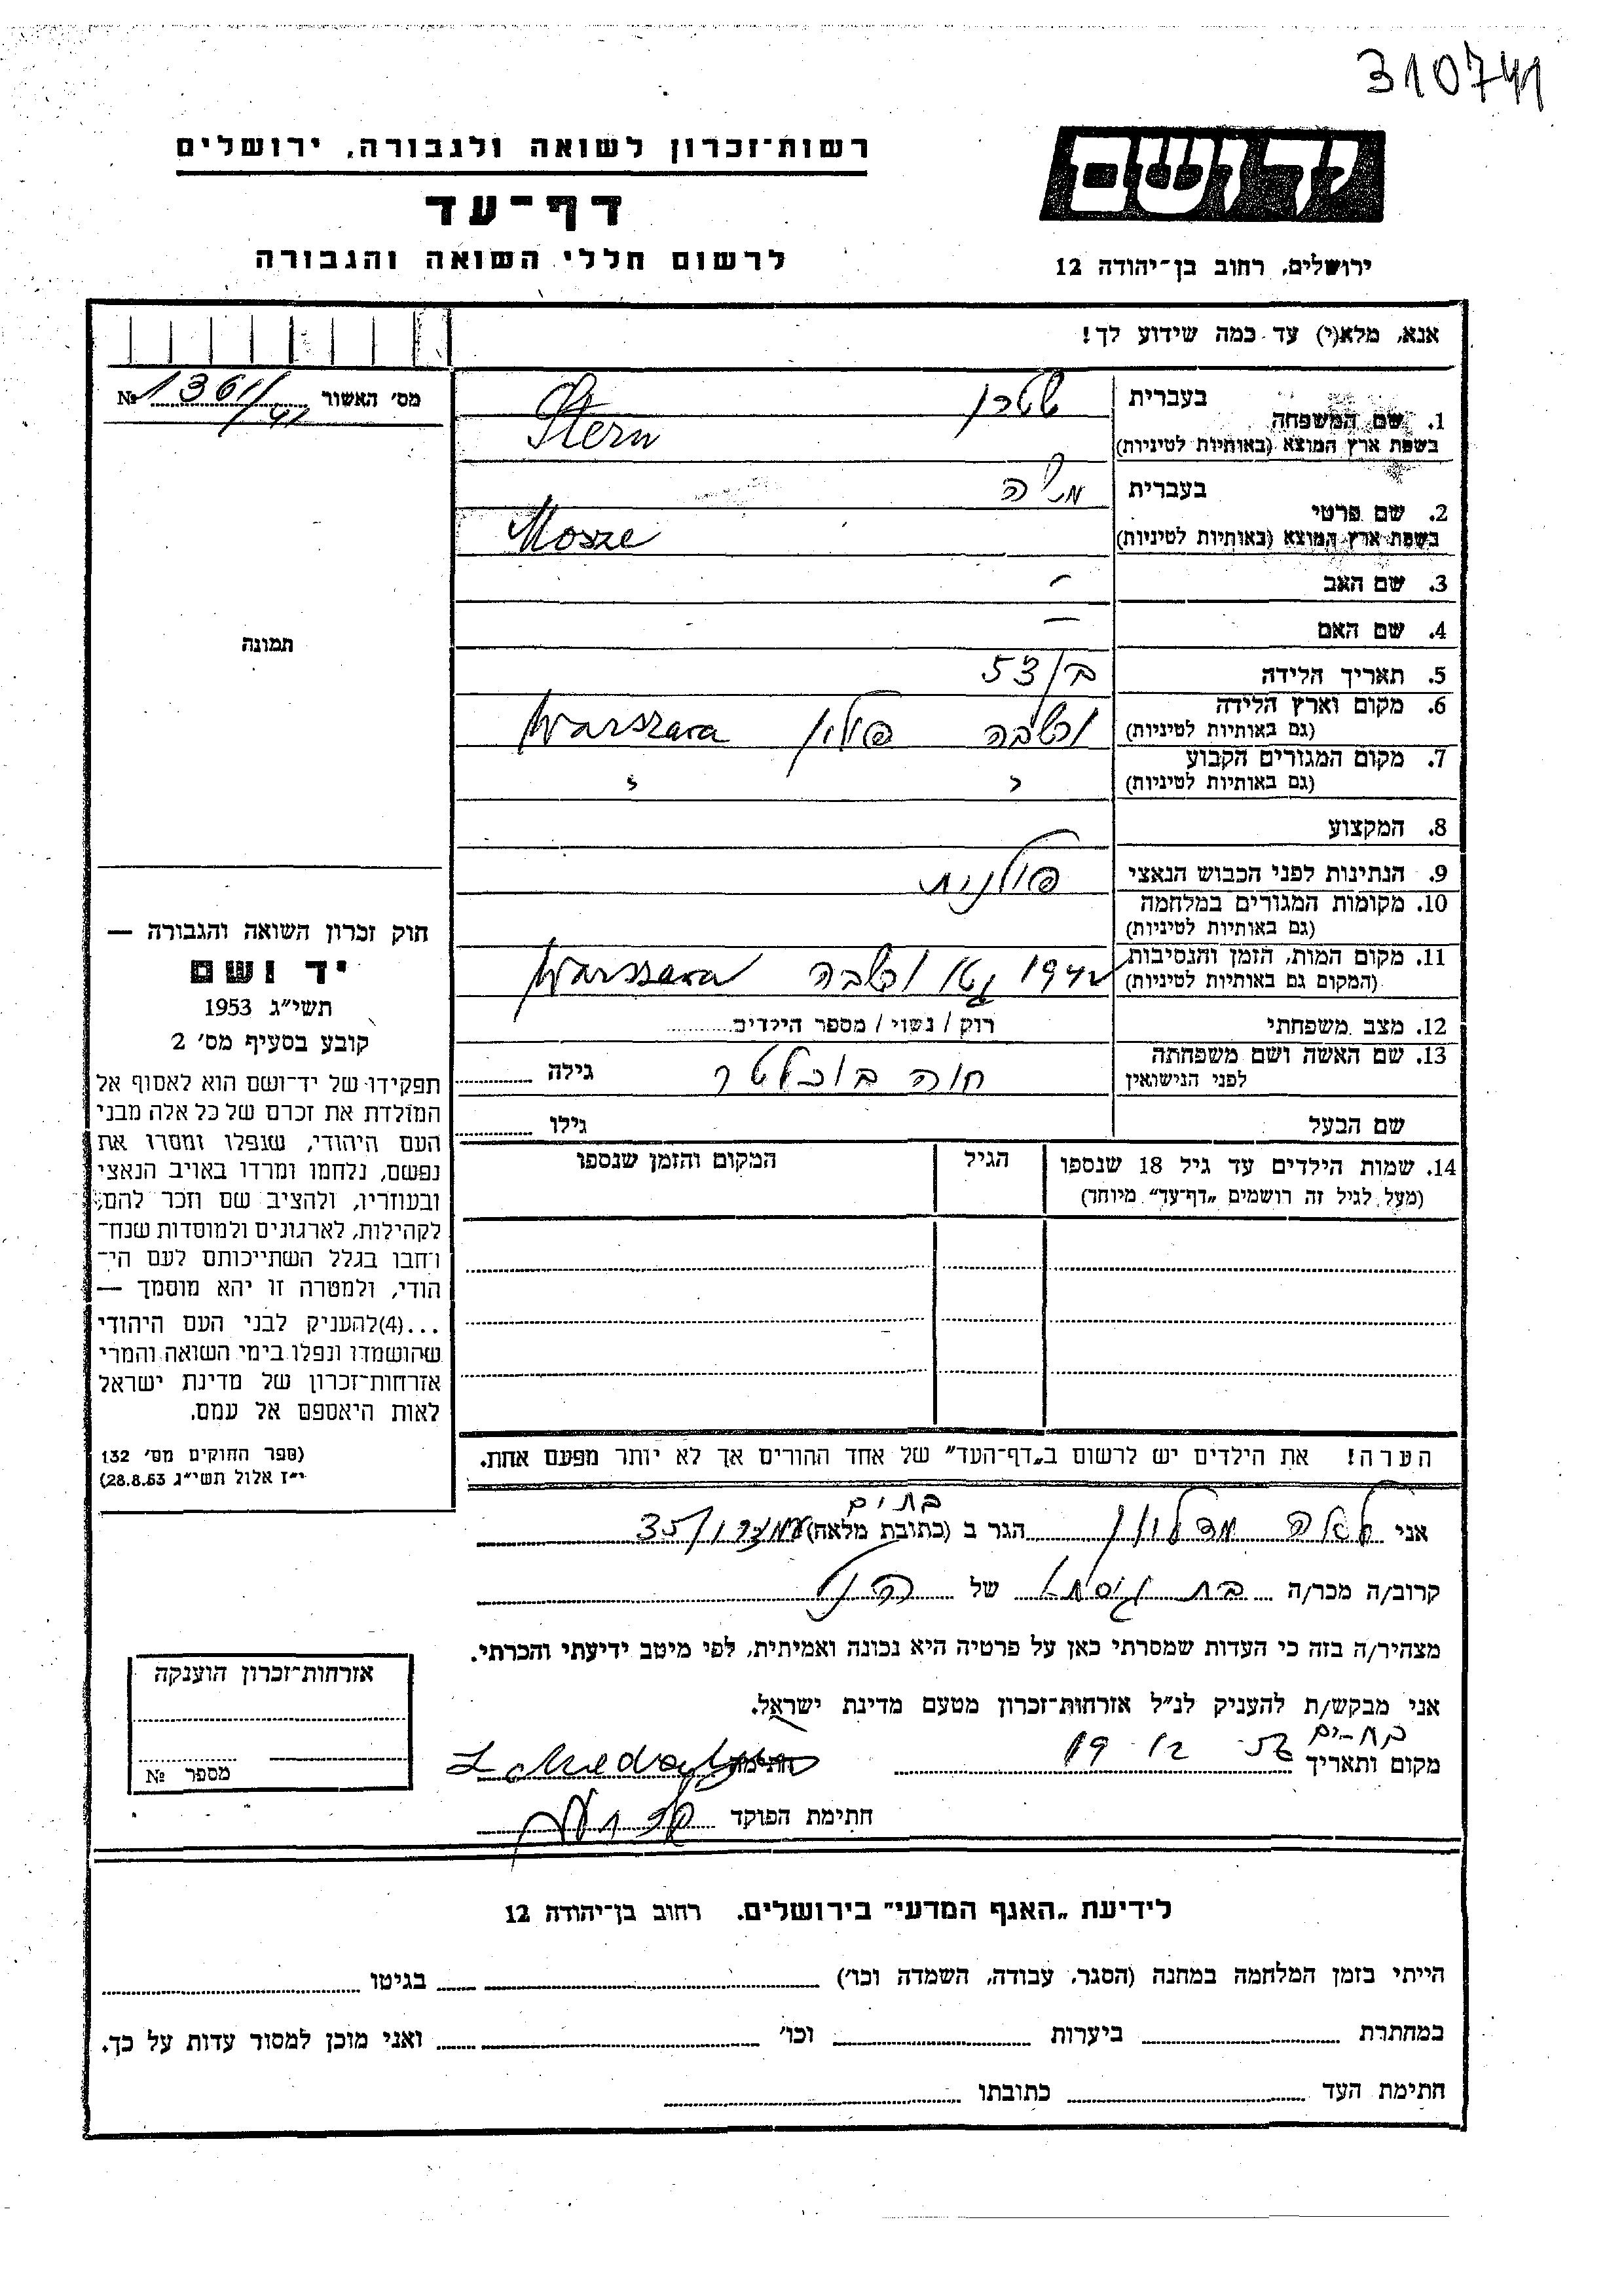 310741
יד ושם
ירושלים, רחוב בן־יהודה 12
רשות־זכרון לשואה ולגבורה, ירושלים
דף־עד
לרשום חללי השואה והגבורה
אנא, מלא(י) עד כמה שידוע לך!
מס' האשור № 1361/41
1. שם המשפחה
בעברית שטרן
בשפת ארץ המוצא (באותיות לטיניות) Stern
2. שם פרטי
בעברית משה
בשפת ארץ המוצא (באותיות לטיניות) Mosze
3. שם האב –
4. שם האם –
5. תאריך הלידה בן/53
6. מקום וארץ הלידה
(גם באותיות לטיניות) ורשבה פולין Warszawa
7. מקום המגורים הקבוע
(גם באותיות לטיניות) " "
8. המקצוע
9. הנתינות לפני הכבוש הנאצי פולנית
10. מקומות המגורים במלחמה
(גם באותיות לטיניות)
11. מקום המות, הזמן והנסיבות
(המקום גם באותיות לטיניות) 1942 גטו ורשבה Warszawa
12. מצב משפחתי רוק / נשוי / מספר הילדים
13. שם האשה ושם משפחתה
לפני הנישואין חוה בוכלטר גילה
שם הבעל גילו
14. שמות הילדים עד גיל 18 שנספו הגיל המקום והזמן שנספו
(מעל לגיל זה רושמים „דף־עד" מיוחד)
הערה! את הילדים יש לרשום ב„דף־העד" של אחד ההורים אך לא יותר מפעם אחת.
תמונה
חוק זכרון השואה והגבורה —
יד ושם
תשי"ג 1953
קובע בסעיף מס' 2
תפקידו של יד־ושם הוא לאסוף אל
המולדת את זכרם של כל אלה מבני
העם היהודי, שנפלו ומסרו את
נפשם, נלחמו ומרדו באויב הנאצי
ובעוזריו, ולהציב שם וזכר להם,
לקהילות, לארגונים ולמוסדות שנח־
רחבו בגלל השתייכותם לעם הי־
הודי, ולמטרה זו יהא מוסמך —
...(4)להעניק לבני העם היהודי
שהושמדו ונפלו בימי השואה והמרי
אזרחות־זכרון של מדינת ישראל
לאות היאספם אל עמם.
(ספר החוקים מס' 132
י"ז אלול תשי"ג 28.8.53)
בת ים
אני לאה הגר ב (כתובת מלאה) 35/
קרוב/ה מכר/ה בת של הנ"ל
מצהיר/ה בזה כי העדות שמסרתי כאן על פרטיה היא נכונה ואמיתית, לפי מיטב ידיעתי והכרתי.
אני מבקש/ת להעניק לנ"ל אזרחות־זכרון מטעם מדינת ישראל.
בת־ים
מקום ותאריך 19 12 56 חתימה
חתימת הפוקד
אזרחות־זכרון הוענקה
מספר №
לידיעת „האגף המדעי" בירושלים. רחוב בן־יהודה 12
הייתי בזמן המלחמה במחנה (הסגר, עבודה, השמדה וכו') בגיטו
במחתרת ביערות וכו' ואני מוכן למסור עדות על כך.
חתימת העד כתובתו